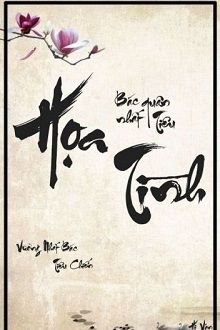 Họa
Bác quân
nhất Tiêu
Tình
Vương Nhất Bác
Tiêu Chiến